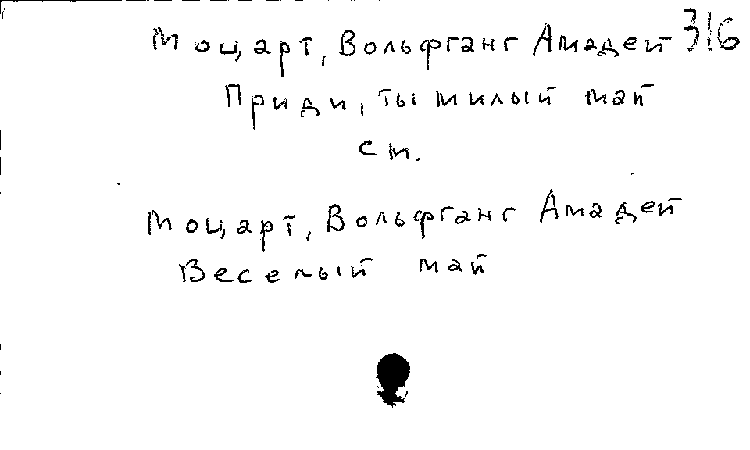 Моцарт, Вольфганг Амадей 316
Приди, ты милый май
см.
Моцарт, Вольфганг Амадей
Веселый май